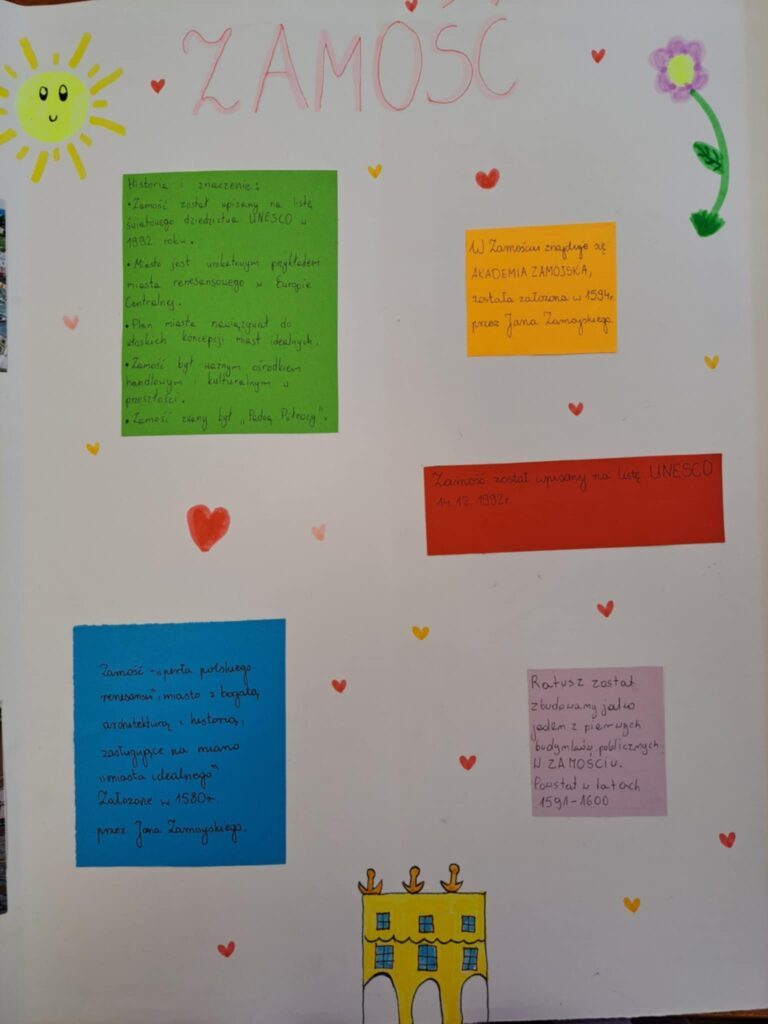 ZAMOŚĆ
Historia i znaczenie:
• Zamość został wpisany na listę
światowego dziedzictwa UNESCO w
1992 roku.
• Miasto jest unikatowym przykładem
miasta renesansowego w Europie
Centralnej.
• Plan miasta nawiązywał do
włoskich koncepcji miast idealnych.
• Zamość był ważnym ośrodkiem
handlowym i kulturalnym w
przeszłości.
• Zamość zwany był „Padwą Północy".
W Zamościu znajduje się
AKADEMIA ZAMOJSKA,
została założona w 1594r.
przez Jana Zamoyskiego.
Zamość został wpisany na listę UNESCO
14.12.1992r.
Zamość -„perła polskiego
renesansu", miasto z bogatą
architekturą i historią,
zasługujące na miano
„miasta idealnego"
Założone w 1580r.
przez Jana Zamoyskiego.
Ratusz został
zbudowany jako
jeden z pierwszych
budynków publicznych
W ZAMOŚCIU.
Powstał w latach
1591-1600